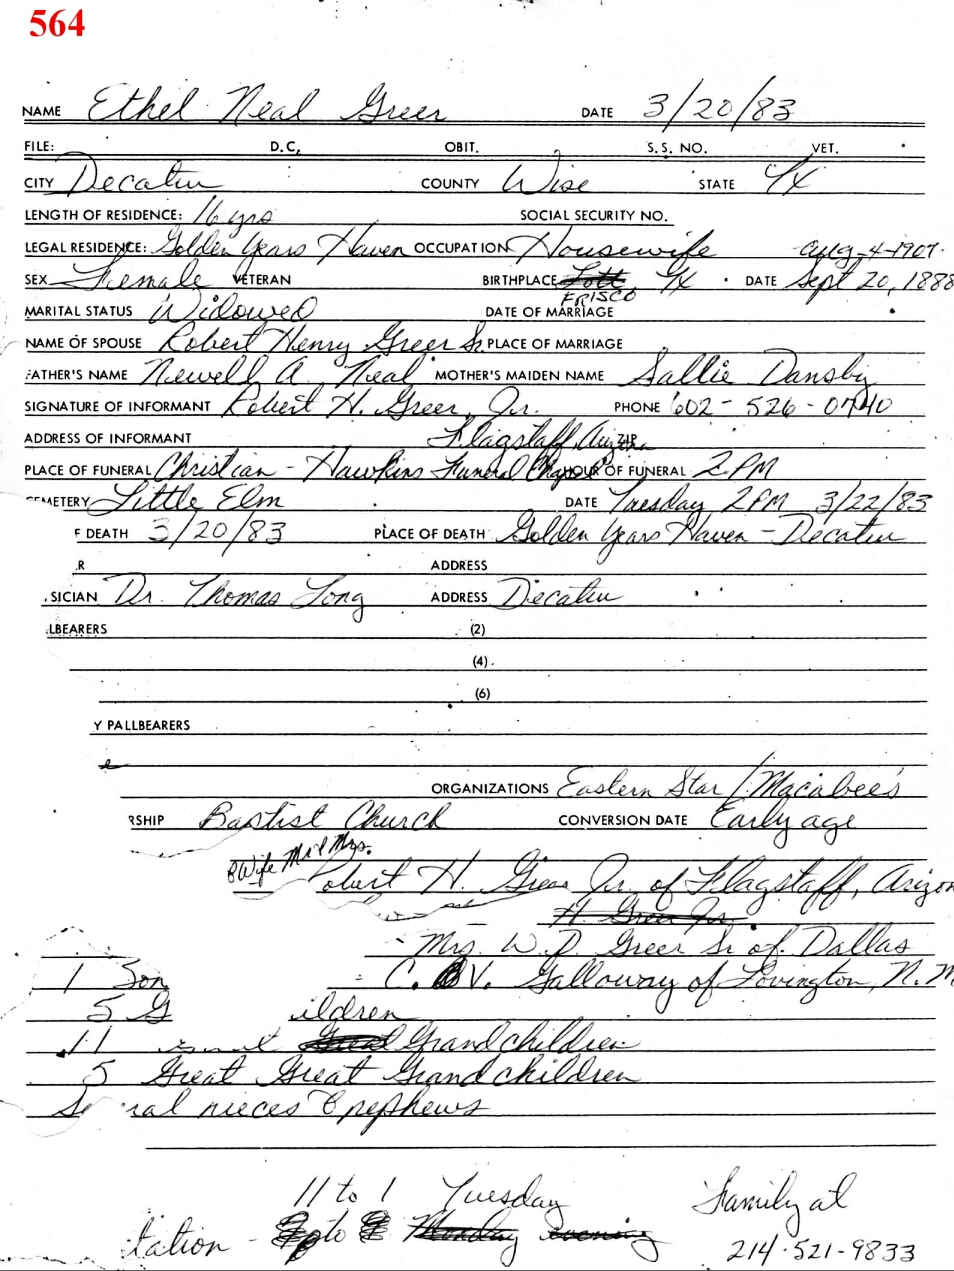 564
NAME Ethel Neal Greer DATE 3/20/83
FILE: D.C. OBIT. S.S. NO. VET.
CITY Decatur COUNTY Wise STATE TX
LENGTH OF RESIDENCE: 16 yrs SOCIAL SECURITY NO.
LEGAL RESIDENCE: Golden Years Haven OCCUPATION Housewife Aug-4-1907
SEX Female VETERAN BIRTHPLACE TX DATE Sept 20, 1888
FRISCO
MARITAL STATUS Widowed DATE OF MARRIAGE
NAME OF SPOUSE Robert Henry Greer Sr. PLACE OF MARRIAGE
FATHER'S NAME Newell A Neal MOTHER'S MAIDEN NAME Sallie Dansby
SIGNATURE OF INFORMANT Robert H. Greer, Jr. PHONE 602-526-0740
ADDRESS OF INFORMANT Flagstaff, Arizona ZIP
PLACE OF FUNERAL Christian-Hawkins Funeral Chapel HOUR OF FUNERAL 2 PM
CEMETERY Little Elm DATE Tuesday 2 PM 3/22/83
F DEATH 3/20/83 PLACE OF DEATH Golden Years Haven-Decatur
R ADDRESS
SICIAN Dr. Thomas Long ADDRESS Decatur
LBEARERS (2)
(4)
(6)
Y PALLBEARERS
ORGANIZATIONS Eastern Star / Macabee's
RSHIP Baptist Church CONVERSION DATE Early age
& Wife Mr & Mrs.
obert H. Greer Jr. of Flagstaff, Arizon
H. Greer Jr.
Mrs. W. D. Greer Sr of Dallas
1 Son C. V. Galloway of Lovington, N.M
5 G ildren
11 Grandchildren
5 Great Great Grandchildren
Se ral nieces & nephews
11 to 1 Tuesday Family at
tation - to Monday evening 214-521-9833